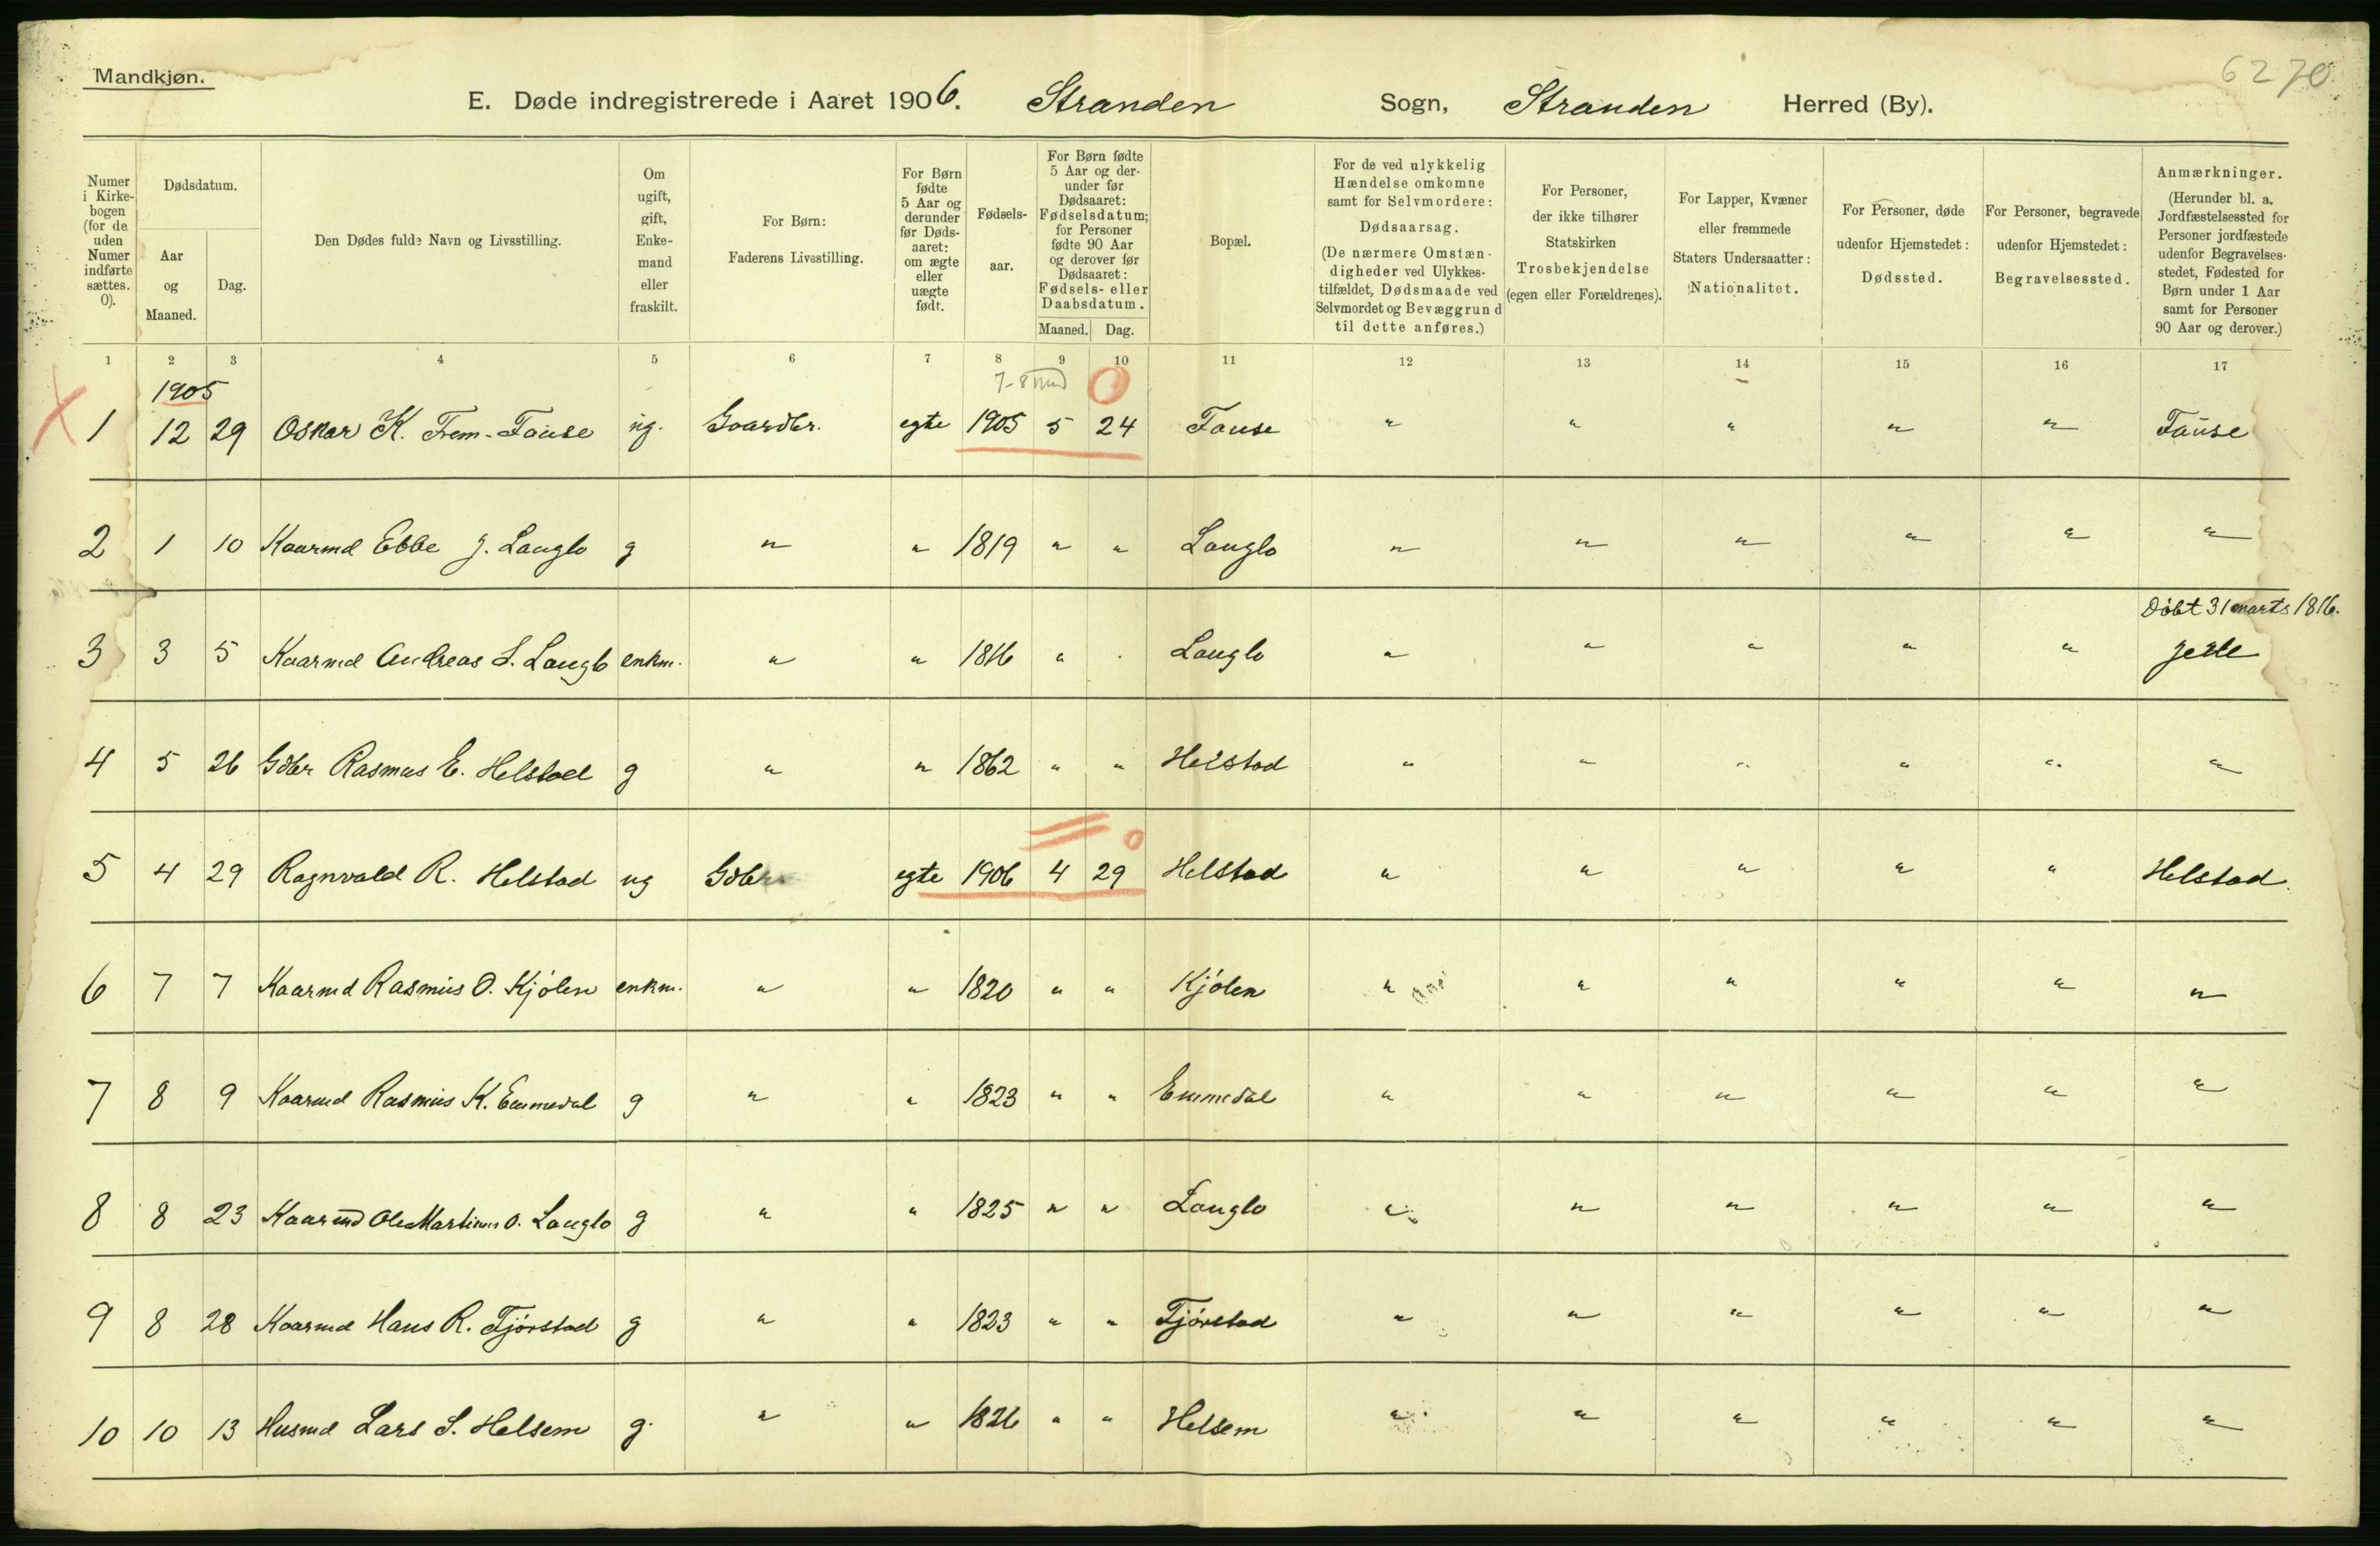 Mandkjøn.
6270
E. Døde indregistrerede i Aaret 1906. Stranden Sogn, Stranden Herred (By).
Numer i Kirke-bogen (for de uden Numer indførte sættes. 0).
Dødsdatum.
Aar og Maaned.
Dag.
Den Dødes fulde Navn og Livsstilling.
Om ugift, gift, Enke-mand eller fraskilt.
For Børn: Faderens Livsstilling.
For Børn fødte 5 Aar og derunder før Døds-aaret: om ægte eller uægte født.
Fødsels-aar.
For Børn fødte 5 Aar og der-under før Dødsaaret: Fødselsdatum; for Personer fødte 90 Aar og derover før Dødsaaret: Fødsels- eller Daabsdatum.
Maaned. Dag.
Bopæl.
For de ved ulykkelig Hændelse omkomne samt for Selvmordere: Dødsaarsag. (De nærmere Omstæn-digheder ved Ulykkes-tilfældet, Dødsmaade ved Selvmordet og Bevæggrund til dette anføres.)
For Personer, der ikke tilhører Statskirken Trosbekjendelse (egen eller Forældrenes).
For Lapper, Kvæner eller fremmede Staters Undersaatter: Nationalitet.
For Personer, døde udenfor Hjemstedet: Dødssted.
For Personer, begravede udenfor Hjemstedet: Begravelsessted.
Anmærkninger. (Herunder bl. a. Jordfæstelsessted for Personer jordfæstede udenfor Begravelses-stedet, Fødested for Børn under 1 Aar samt for Personer 90 Aar og derover.)
1 2 3 4 5 6 7 8 9 10 11 12 13 14 15 16 17
1905 7-8 Mnd 0
1 12 29 Oskar K. Frem-Fause ug. Gaardbr. egte 1905 5 24 Fause " " " " " Fause
2 1 10 Kaarmd Ebbe J. Langlo g " " 1819 " " Langlo " " " " " "
Döbt 31 marts 1816.
3 3 5 Kaarmd Andreas L. Langlo enkm. " " 1816 " . Langlo " " " " "
4 5 26 Gdbr Rasmus E. Helstad g " " 1862 " " Helstad " " " " " "
0
5 4 29 Ragnvald R. Helstad ug Gdbr egte 1906 4 29 Helstad " " " " " Helstad.
6 7 7 Kaarmd Rasmus O. Kjölen enkm. " " 1820 " " Kjölen " " " " " "
7 8 9 Kaarmd Rasmus K. Emmedal g " " 1823 " " Emmedal " " " " " "
8 8 23 Kaarmd Ole Martinus O. Langlo g " " 1825 " " Langlo " " " " " "
9 8 28 Kaarmd Hans R. Tjörstad g " " 1823 " " Tjörstad " " " " " "
10 10 13 Husmd Lars S. Helsem g. " " 1826 " " Helsem " " " " " "